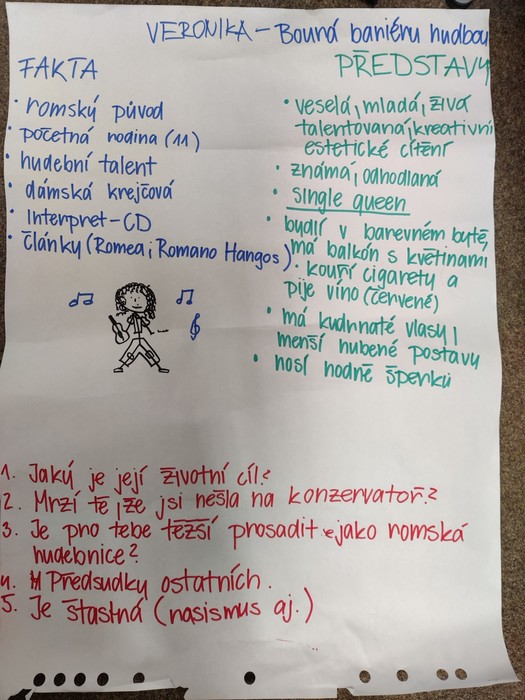 VERONIKA – Bourá bariéru hudbou
FAKTA
• romský původ
• početná rodina (11)
• hudební talent
• dámská krejčová
• Interpret - CD
• články (Romea, Romano Hangos)
PŘEDSTAVY
• veselá, mladá, živá
talentovaná, kreativní
estetické cítění
• známá, odhodlaná
• single queen
• bydlí v barevném bytě,
má balkón s květinami
• kouří cigarety a
pije víno (červené)
• má kudrnaté vlasy,
menší hubené postavy
• nosí hodně šperků
1. Jaký je její životní cíl?
2. Mrzí tě, že jsi nešla na konzervatoř?
3. Je pro tebe těžší prosadit se jako romská
hudebnice?
4. Předsudky ostatních.
5. Je šťastná (rasismus aj.)